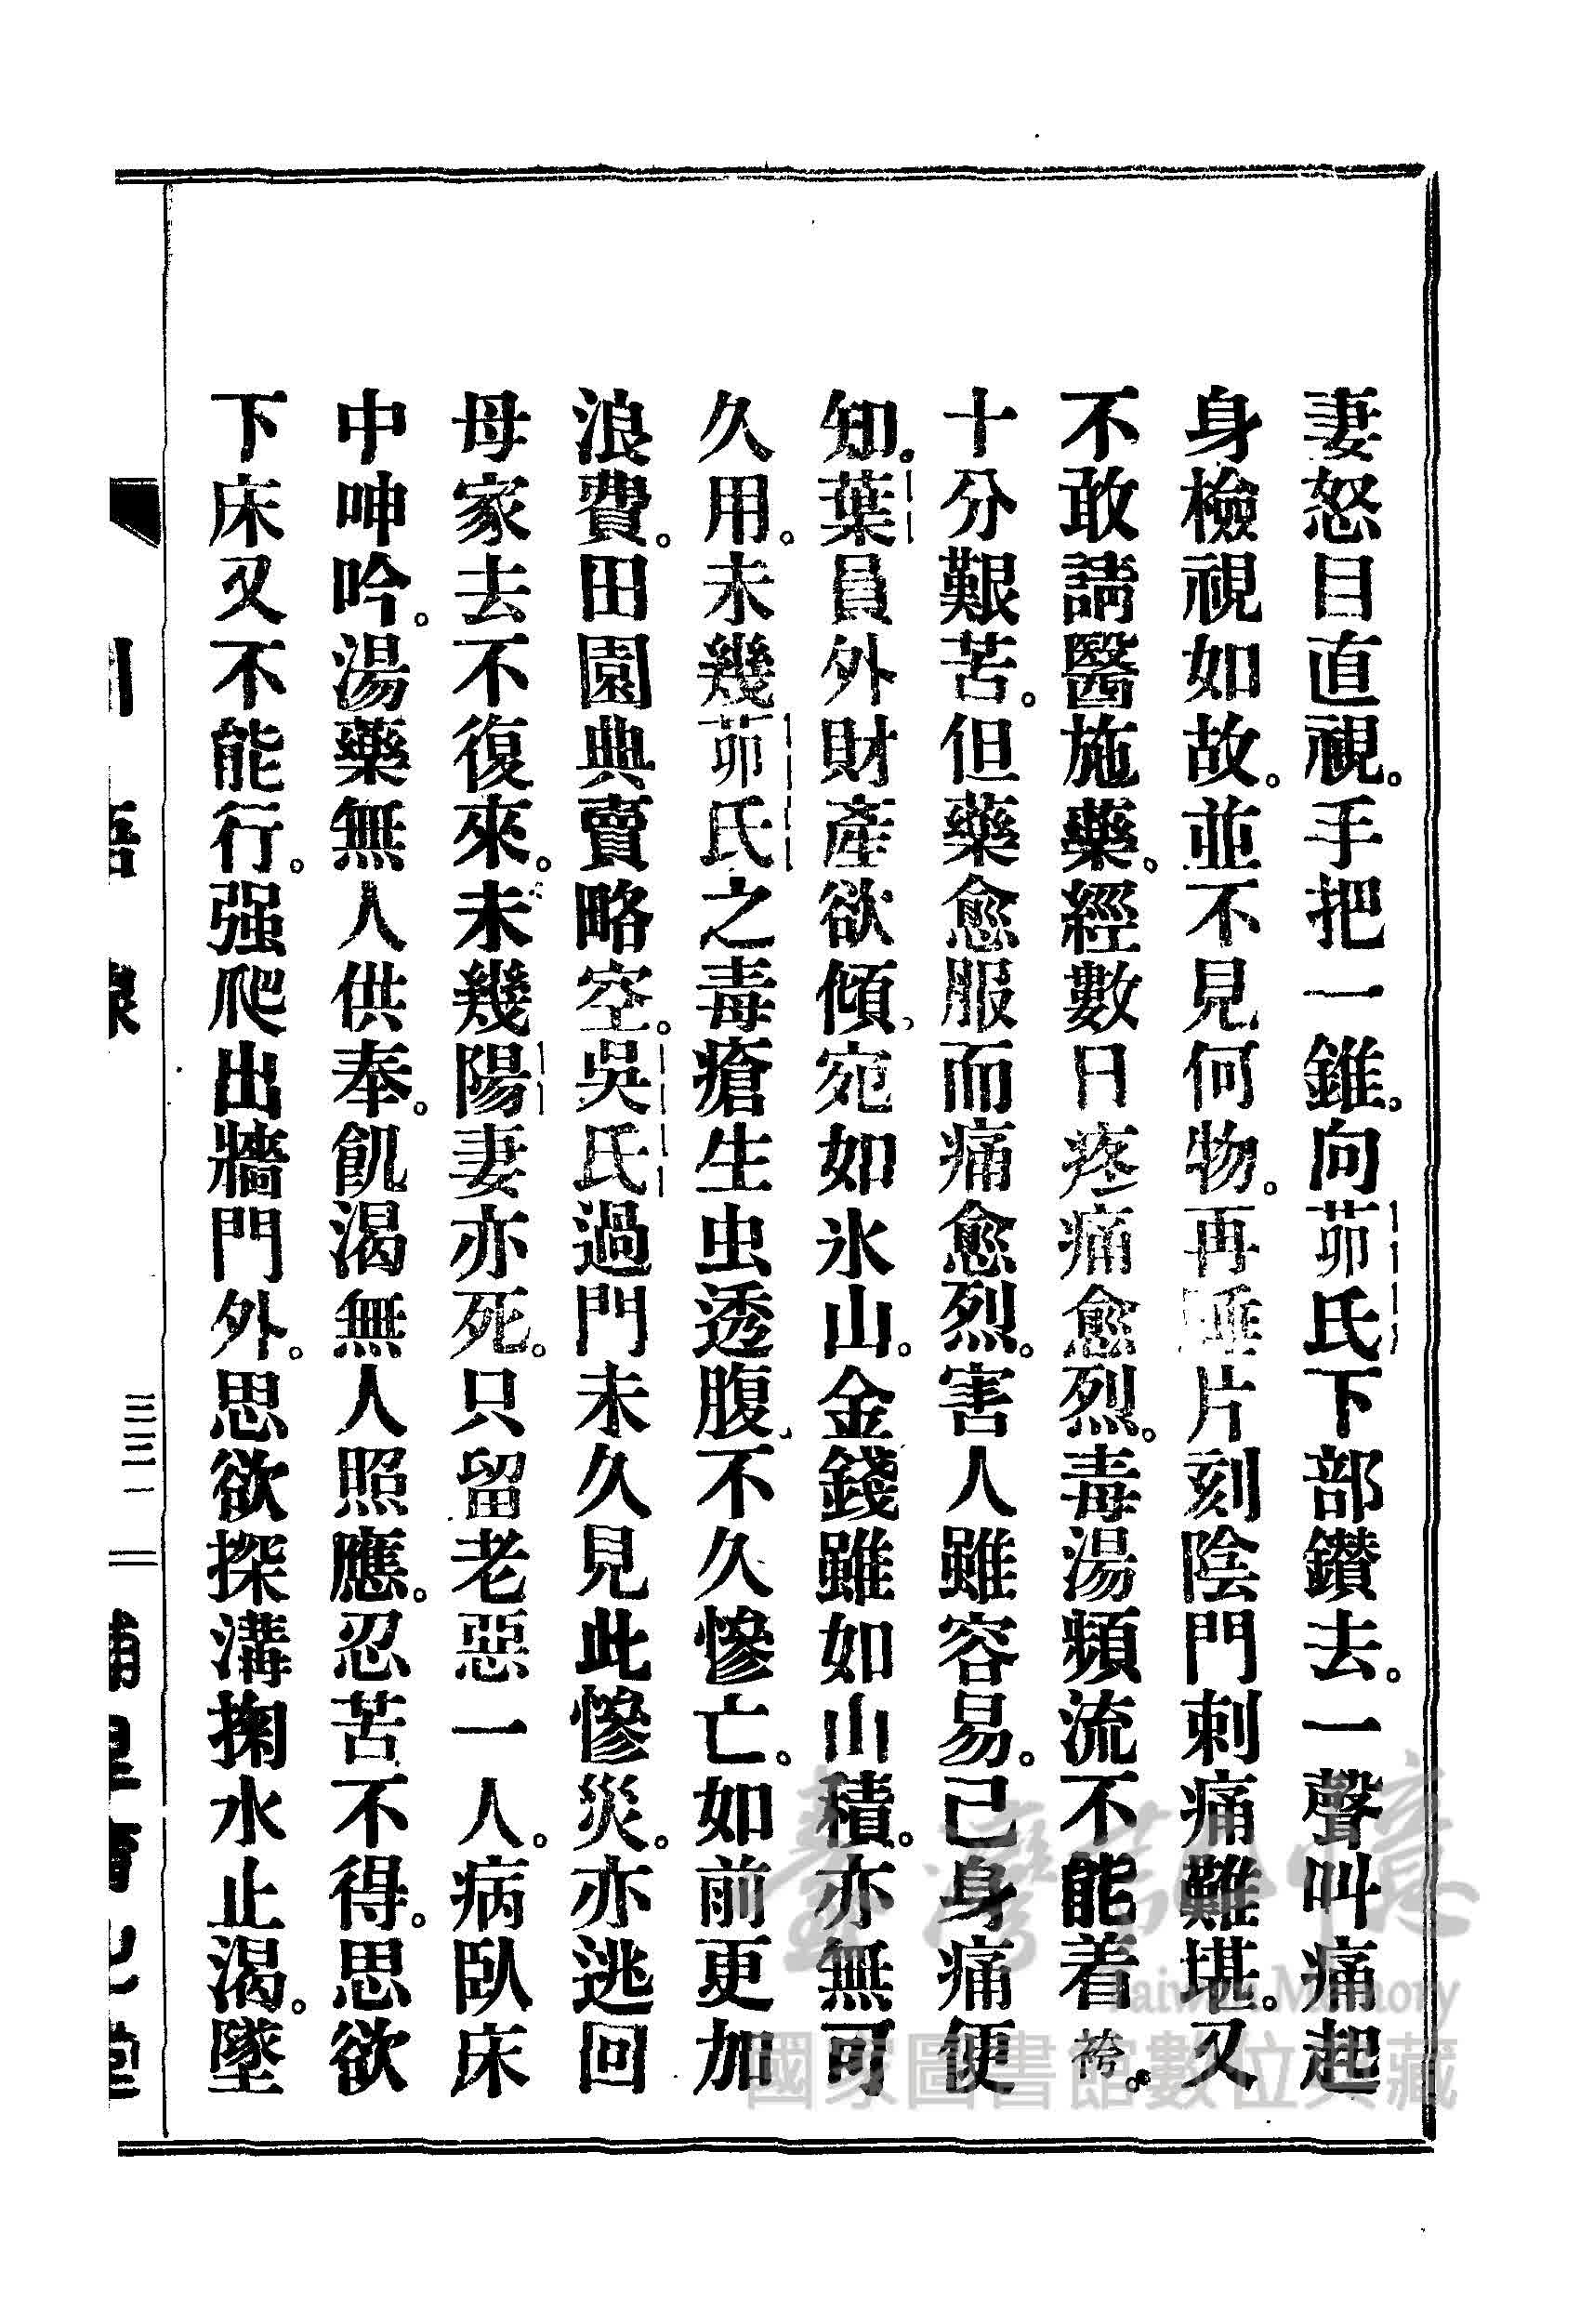 妻怒目直視。手把一錐。向茆氏下部鑽去。一聲叫痛起
身檢視如故。並不見何物。再睡片刻陰門刺痛難堪。又
不敢請醫施藥。經數日疼痛愈烈。毒湯頻流不能着袴。
十分艱苦。但藥愈服而痛愈烈。害人雖容易。己身痛便
知。葉員外財產欲傾、宛如氷山。金錢雖如山積。亦無可
久用。未幾茆氏之毒瘡生虫透腹、不久慘亡。如前更加
浪費。田園典賣略空。吳氏過門未久見此慘災。亦逃回
母家去不復來。未幾陽妻亦死。只留老惡一人。病臥床
中呻吟。湯藥無人供奉。飢渴無人照應。忍苦不得。思欲
下床又不能行。强爬出牆門外。思欲探溝掬水止渴。墜
三三一
臺灣記憶
Taiwan Memory
國家圖書館數位典藏